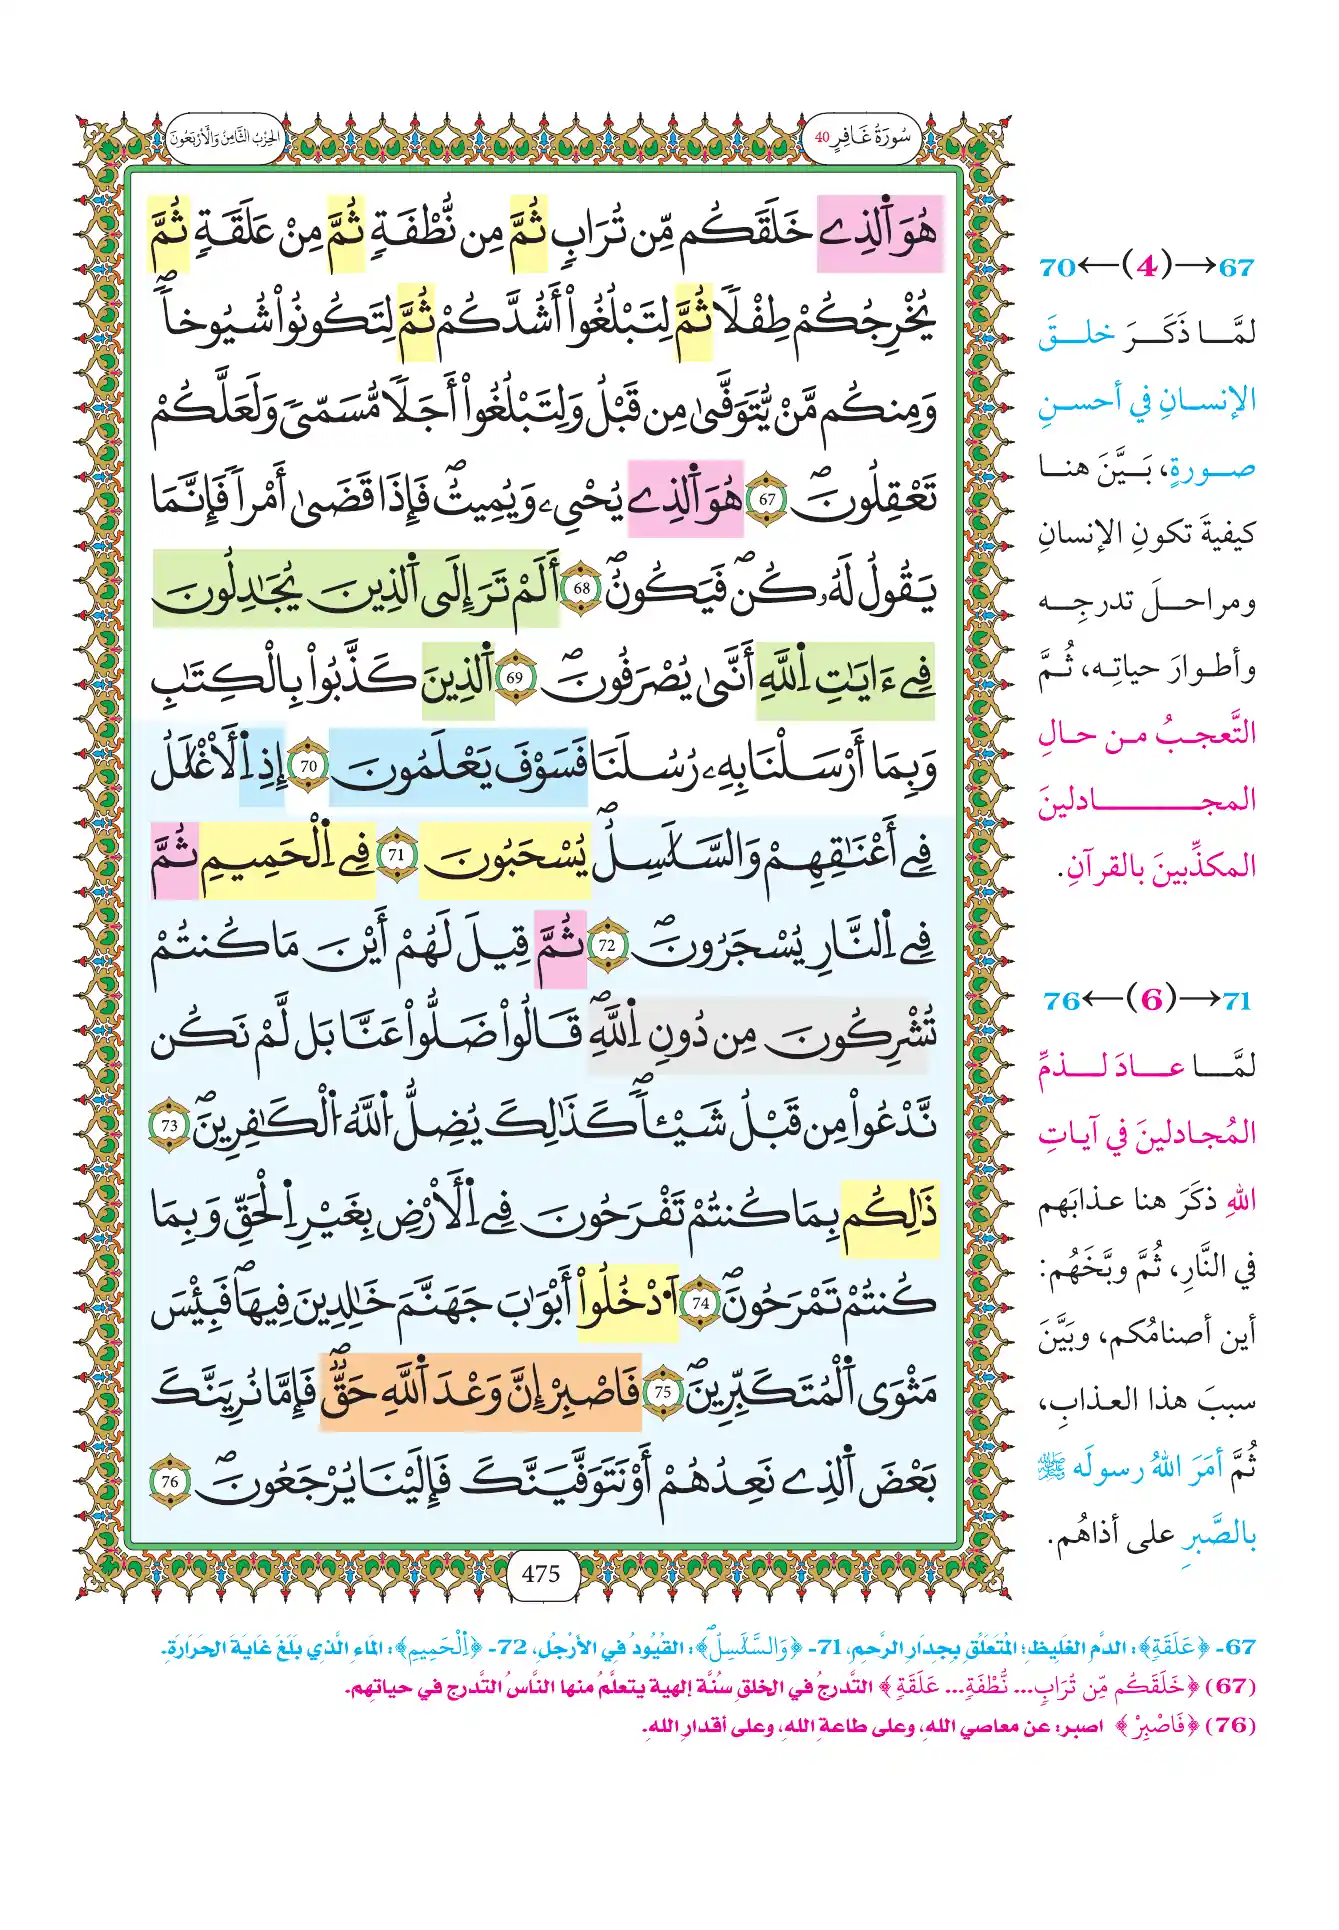 سُورَةُ غَافِرٍ 40
الحِزْبُ الثَّامِنُ وَالأَرْبَعُونَ
هُوَ اَ۬لذِے خَلَقَكُم مِّن تُرَابٖ ثُمَّ مِن نُّطْفَةٖ ثُمَّ مِنْ عَلَقَةٖ ثُمَّ
يُخْرِجُكُمْ طِفْلاٗ ثُمَّ لِتَبْلُغُواْ أَشُدَّكُمْ ثُمَّ لِتَكُونُواْ شُيُوخاٗۖ
وَمِنكُم مَّنْ يُّتَوَفَّىٰ مِن قَبْلُ وَلِتَبْلُغُواْ أَجَلاٗ مُّسَمّيٗ وَلَعَلَّكُمْ
تَعْقِلُونَۖ 67 هُوَ اَ۬لذِے يُحْيِۦ وَيُمِيتُۖ فَإِذَا قَضَىٰ أَمْراٗ فَإِنَّمَا
يَقُولُ لَهُۥ كُنۖ فَيَكُونُۖ 68 أَلَمْ تَرَ إِلَى اَ۬لذِينَ يُجَٰدِلُونَ
فِےٓ ءَايَٰتِ اِ۬للَّهِ أَنَّىٰ يُصْرَفُونَۖ 69 اَ۬لذِينَ كَذَّبُواْ بِالْكِتَٰبِ
وَبِمَا أَرْسَلْنَا بِهِۦ رُسُلَنَا فَسَوْفَ يَعْلَمُونَ 70 إِذِ اِ۬لَاغْلَٰلُ
فِے أَعْنَٰقِهِمْ وَالسَّلَٰسِلُۖ يُسْحَبُونَ 71 فِے اِ۬لْحَمِيمِ ثُمَّ
فِے اِ۬لنَّارِ يُسْجَرُونَۖ 72 ثُمَّ قِيلَ لَهُمْ أَيْنَ مَا كُنتُمْ
تُشْرِكُونَ مِن دُونِ اِ۬للَّهِۖ قَالُواْ ضَلُّواْ عَنَّا بَل لَّمْ نَكُن
نَّدْعُواْ مِن قَبْلُ شَيْـٔاٗۖ كَذَٰلِكَ يُضِلُّ اُ۬للَّهُ اُ۬لْكَٰفِرِينَۖ 73
ذَٰلِكُم بِمَا كُنتُمْ تَفْرَحُونَ فِے اِ۬لَارْضِ بِغَيْرِ اِ۬لْحَقِّ وَبِمَا
كُنتُمْ تَمْرَحُونَۖ 74 اَ۟دْخُلُواْ أَبْوَٰبَ جَهَنَّمَ خَٰلِدِينَ فِيهَاۖ فَبِئْسَ
مَثْوَى اَ۬لْمُتَكَبِّرِينَۖ 75 فَاصْبِرْ إِنَّ وَعْدَ اَ۬للَّهِ حَقّٞۖ فَإِمَّا نُرِيَنَّكَ
بَعْضَ اَ۬لذِے نَعِدُهُمْ أَوْ نَتَوَفَّيَنَّكَ فَإِلَيْنَا يُرْجَعُونَۖ 76
475
67→(4)←70
لمَّا ذَكَرَ خلقَ
الإنسانِ في أحسنِ
صورةٍ، بَيَّنَ هنا
كيفيةَ تكونِ الإنسانِ
ومراحلَ تدرجِه
وأطوارَ حياتِه، ثُمَّ
التَّعجبُ من حالِ
المجادلينَ
المكذِّبينَ بالقرآنِ.
71→(6)←76
لمَّا عادَ لذمِّ
المُجادلينَ في آياتِ
اللهِ ذكَرَ هنا عذابَهم
في النَّارِ، ثُمَّ وبَّخَهُم:
أين أصنامُكم، وبَيَّنَ
سببَ هذا العذابِ،
ثُمَّ أمَرَ اللهُ رسولَه ﷺ
بالصَّبرِ على أذاهُم.
67- ﴿عَلَقَةٖ﴾: الدَّمِ الغَلِيظِ؛ المُتَعَلِّقِ بِجِدَارِ الرَّحِمِ، 71- ﴿وَالسَّلَٰسِلُۖ﴾: القُيُودُ فِي الأَرْجُلِ، 72- ﴿اِ۬لْحَمِيمِ﴾: المَاءِ الَّذِي بَلَغَ غَايَةَ الحَرَارَةِ.
(67) ﴿خَلَقَكُم مِّن تُرَابٖ... نُّطْفَةٖ... عَلَقَةٖ﴾ التَّدرجُ في الخلقِ سُنَّة إلهية يتعلَّمُ منها النَّاسُ التَّدرج في حياتِهم.
(76) ﴿فَاصْبِرْ﴾ اصبر: عن معاصي اللهِ، وعلى طاعةِ اللهِ، وعلى أقدارِ اللهِ.